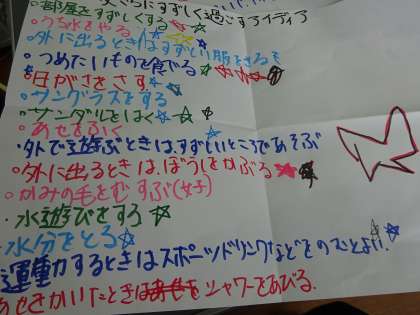 すずしく過ごすアイディア
○部屋をすずしくする
○うち水をやる
○外に出るときはすずしい服をきる
○つめたいものを食べる
○日がさをさす
○サングラスをする
○サンダルをはく
○あせをふく
・外で遊ぶときは、すずしいところであそぶ
○外に出るときは、ぼうしをかぶる
○かみの毛をむすぶ(女子)
・水遊びをする
・水分をとる
・運動するときはスポーツドリンクなどをのむとよい!!
あせをかいたときは シャワーをあびる。